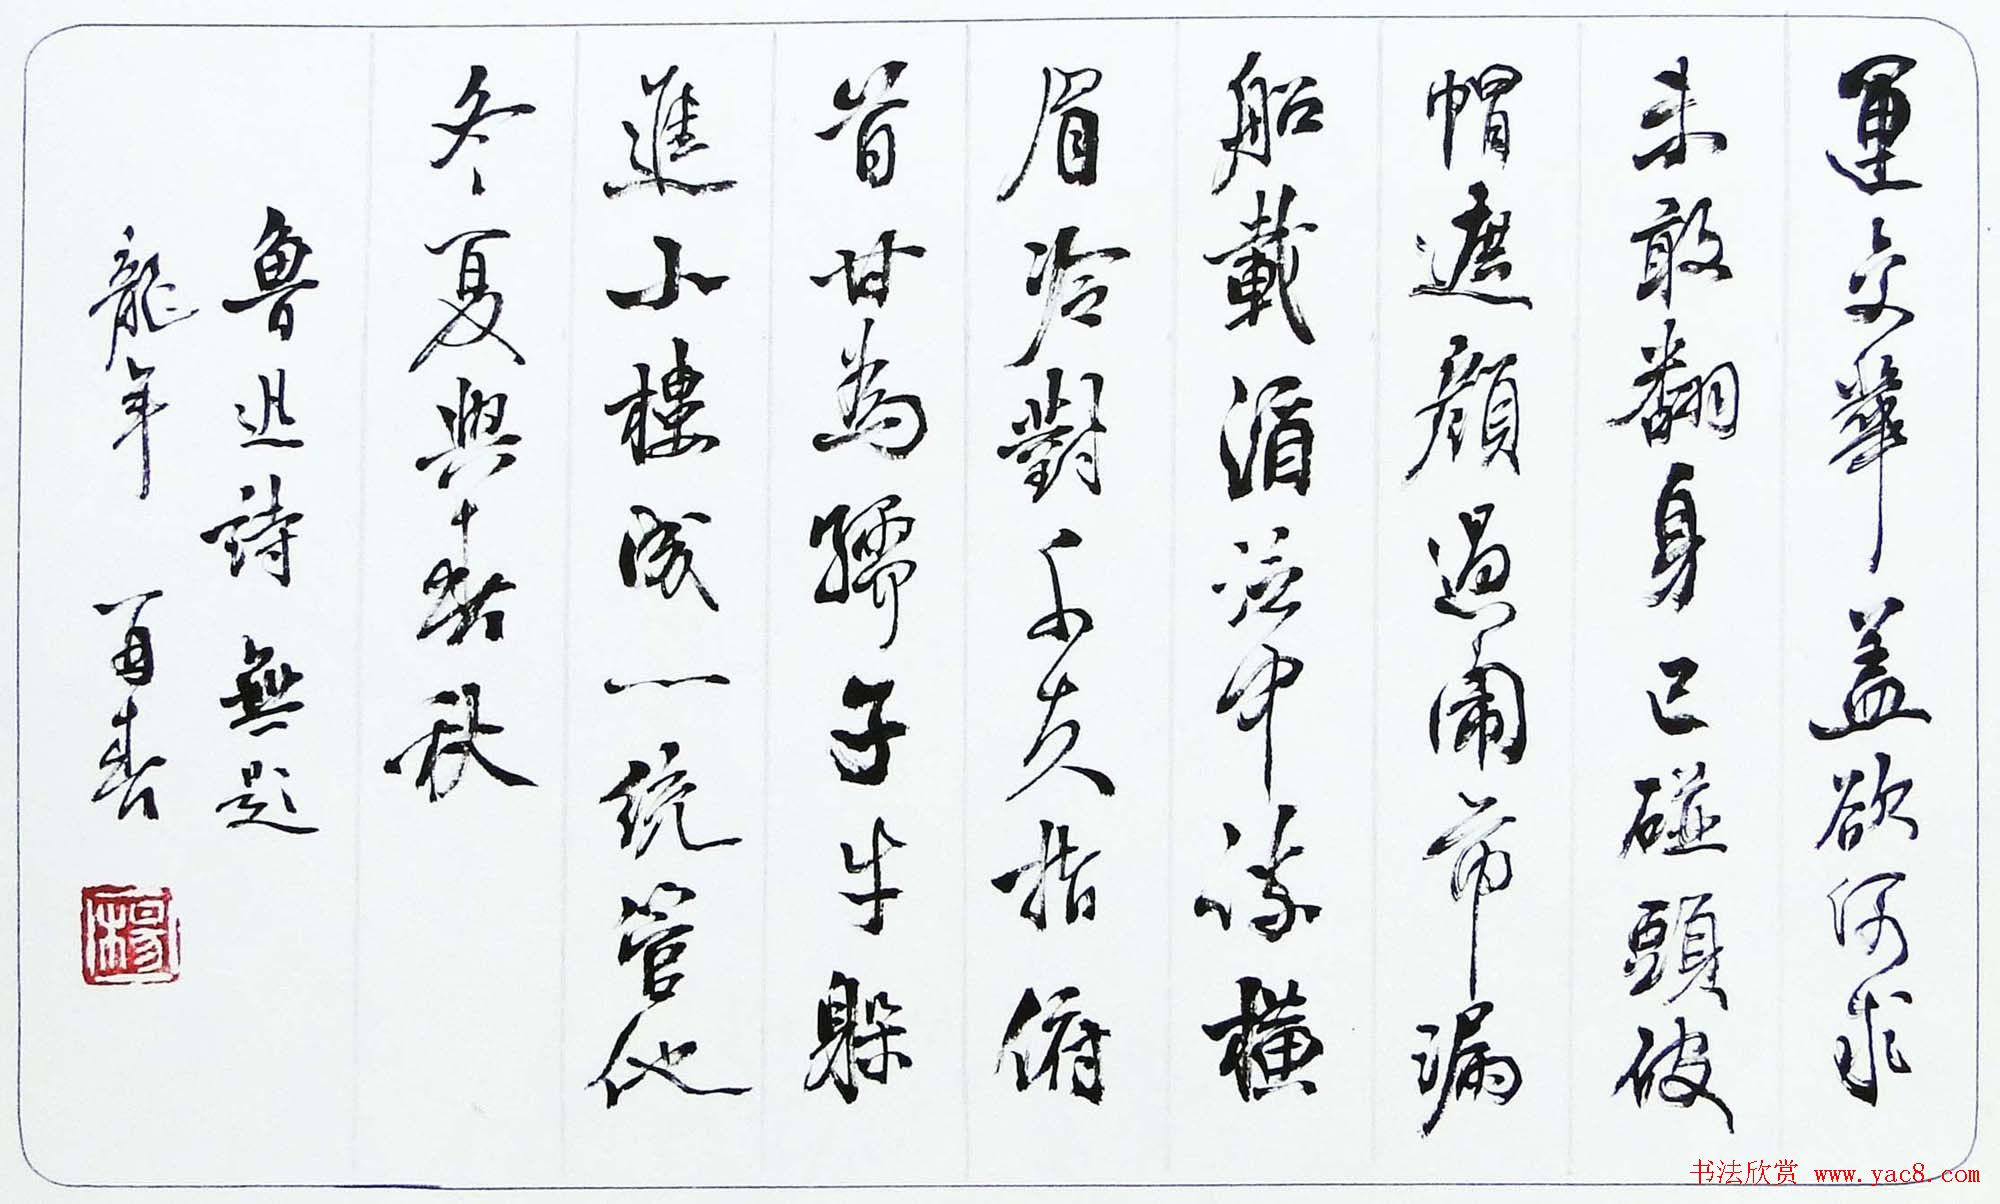 運交華蓋欲何求
未敢翻身已碰頭破
帽遮顏過鬧市漏
船載酒泛中流橫
眉冷對千夫指俯
首甘為孺子牛躲
進小樓成一統管他
冬夏與春秋
魯迅詩 無題
龍年 春
楊
书法欣赏 www.yac8.com